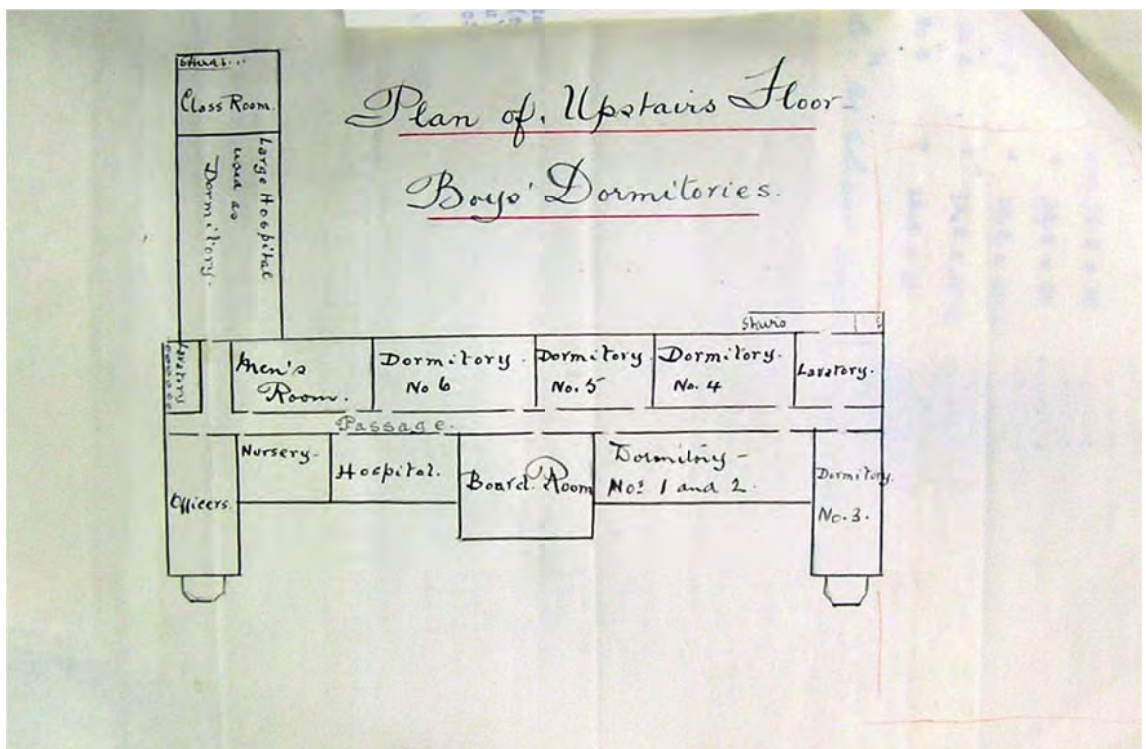 Plan of. Upstairs Floor
Boys' Dormitories.
Class Room.
Large Hospital
used as
Dormitory.
Stairs
Lavatory
Men's
Room.
Dormitory.
No 6
Dormitory
No. 5
Dormitory.
No. 4
Lavatory.
Passage.
Officers.
Nursery-
Hospital.
Board Room
Dormitory -
Nos 1 and 2.
Dormitory.
No. 3.